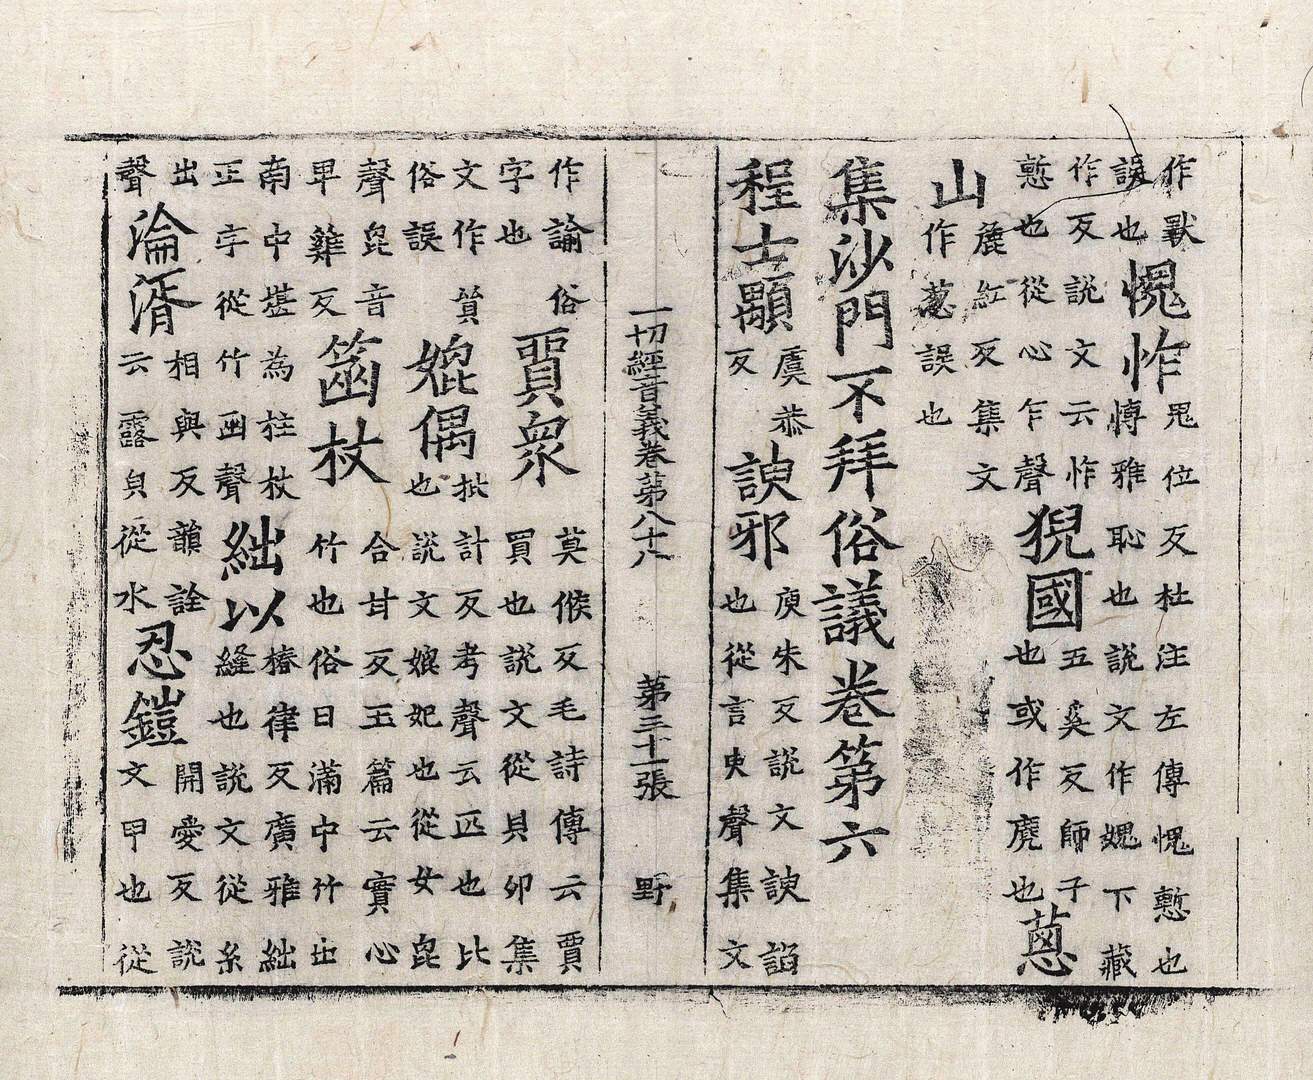 作獸誤也愧怍𠵀位反杜注左傳愧慙也愽雅恥也說文作媿下藏
作反說文云怍慙也從心乍聲猊國五奚反師子也或作麑也蔥
山麁紅反集文作蔥誤也
集沙門不拜俗議卷第六
程士顒虞恭反諛邪庾朱反說文諛諂也從言臾聲集文
一切經音義卷第八十八 第三十一張 野
作諭俗字也賈衆莫候反毛詩傳云賈買也說文從貝卯集
文作貿俗誤媲偶批計反考聲云匹也比也說文嬪妃也從女毘
聲毘音卑薙反䈄杖合甘反玉篇云實心竹也俗曰滿中竹出
南中堪為拄杖正字從竹函聲絀以椿律反廣雅絀縫也說文從糸
出聲淪湑相與反韻詮云露皃從水忍鎧開愛反說文甲也從